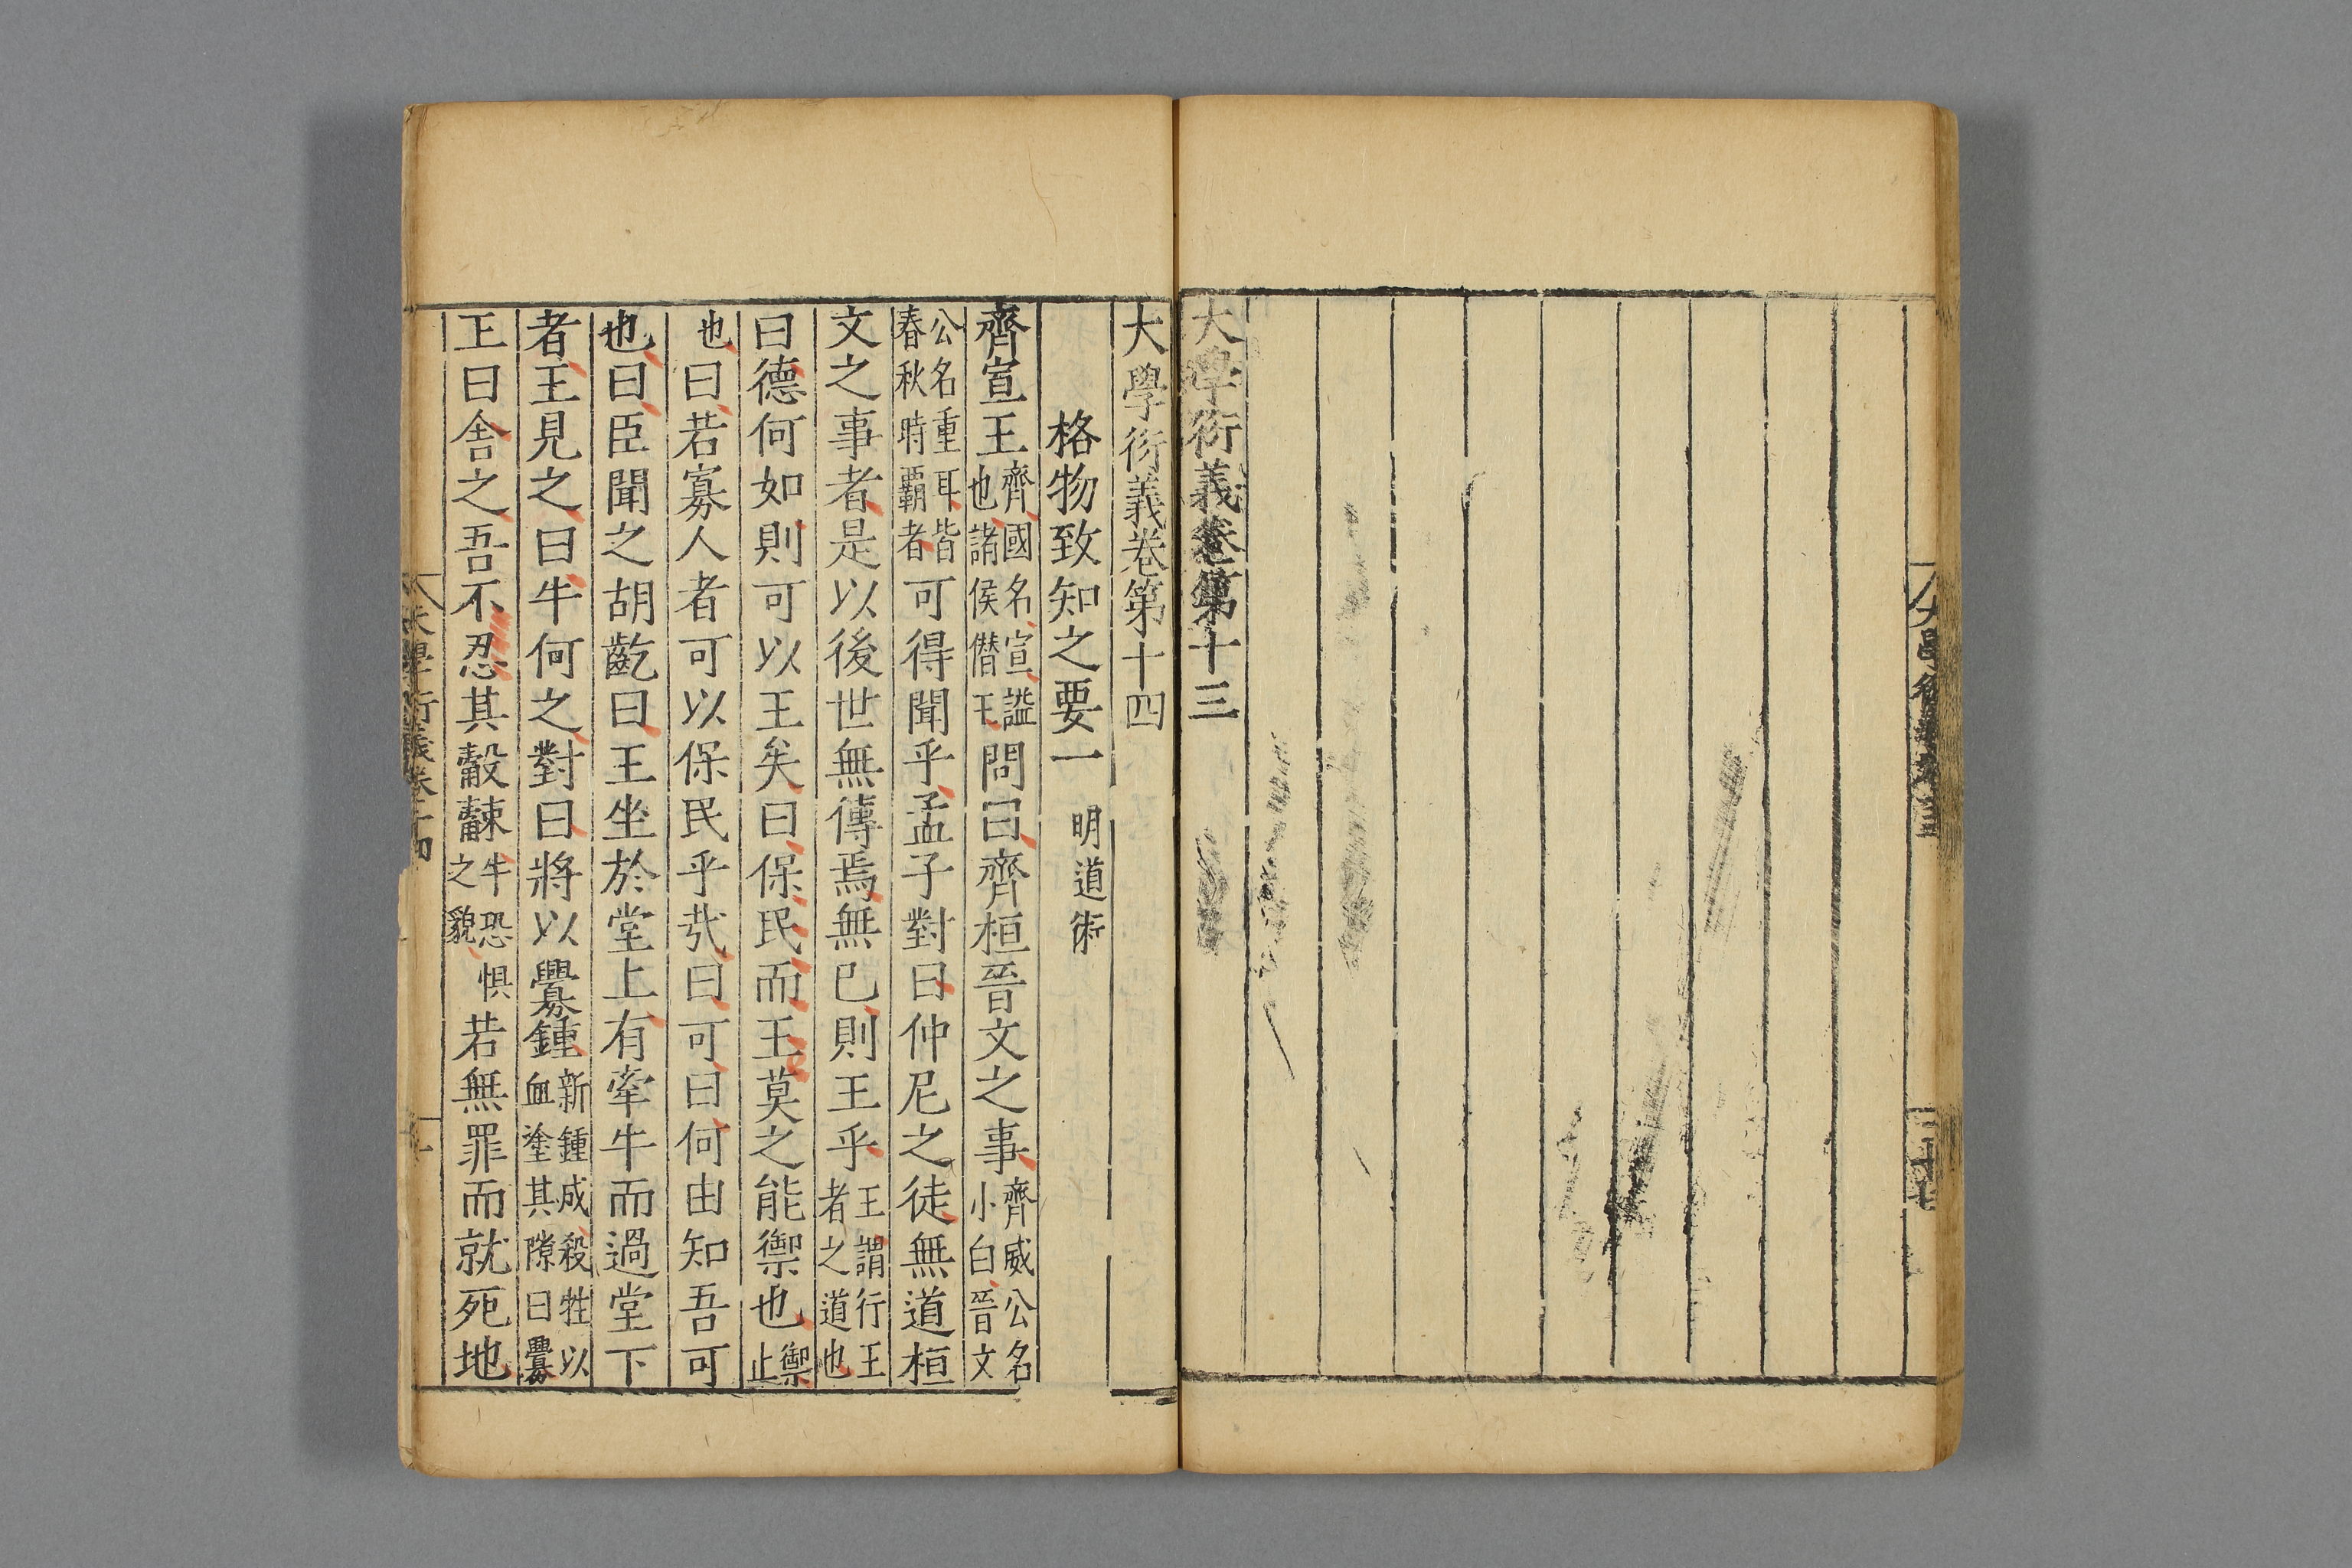 大學衍義卷第十三
大學衍義卷第十四
格物致知之要一 明道術
齊宣王齊國名宣謚也諸侯僣王問曰齊桓晉文之事齊威公名小白晉文
公名重耳皆春秋時覇者可得聞乎孟子對曰仲尼之徒無道桓
文之事者是以後世無傳焉無已則王乎王謂行王者之道也
曰德何如則可以王矣曰保民而王莫之能禦也禦止
也曰若寡人者可以保民乎哉曰可曰何由知吾可
也曰臣聞之胡齕曰王坐於堂上有牽牛而過堂下
者王見之曰牛何之對曰將以釁鍾新鍾成殺牲以血塗其隙曰釁
王曰舍之吾不忍其觳觫牛恐惧之貌若無罪而就死地